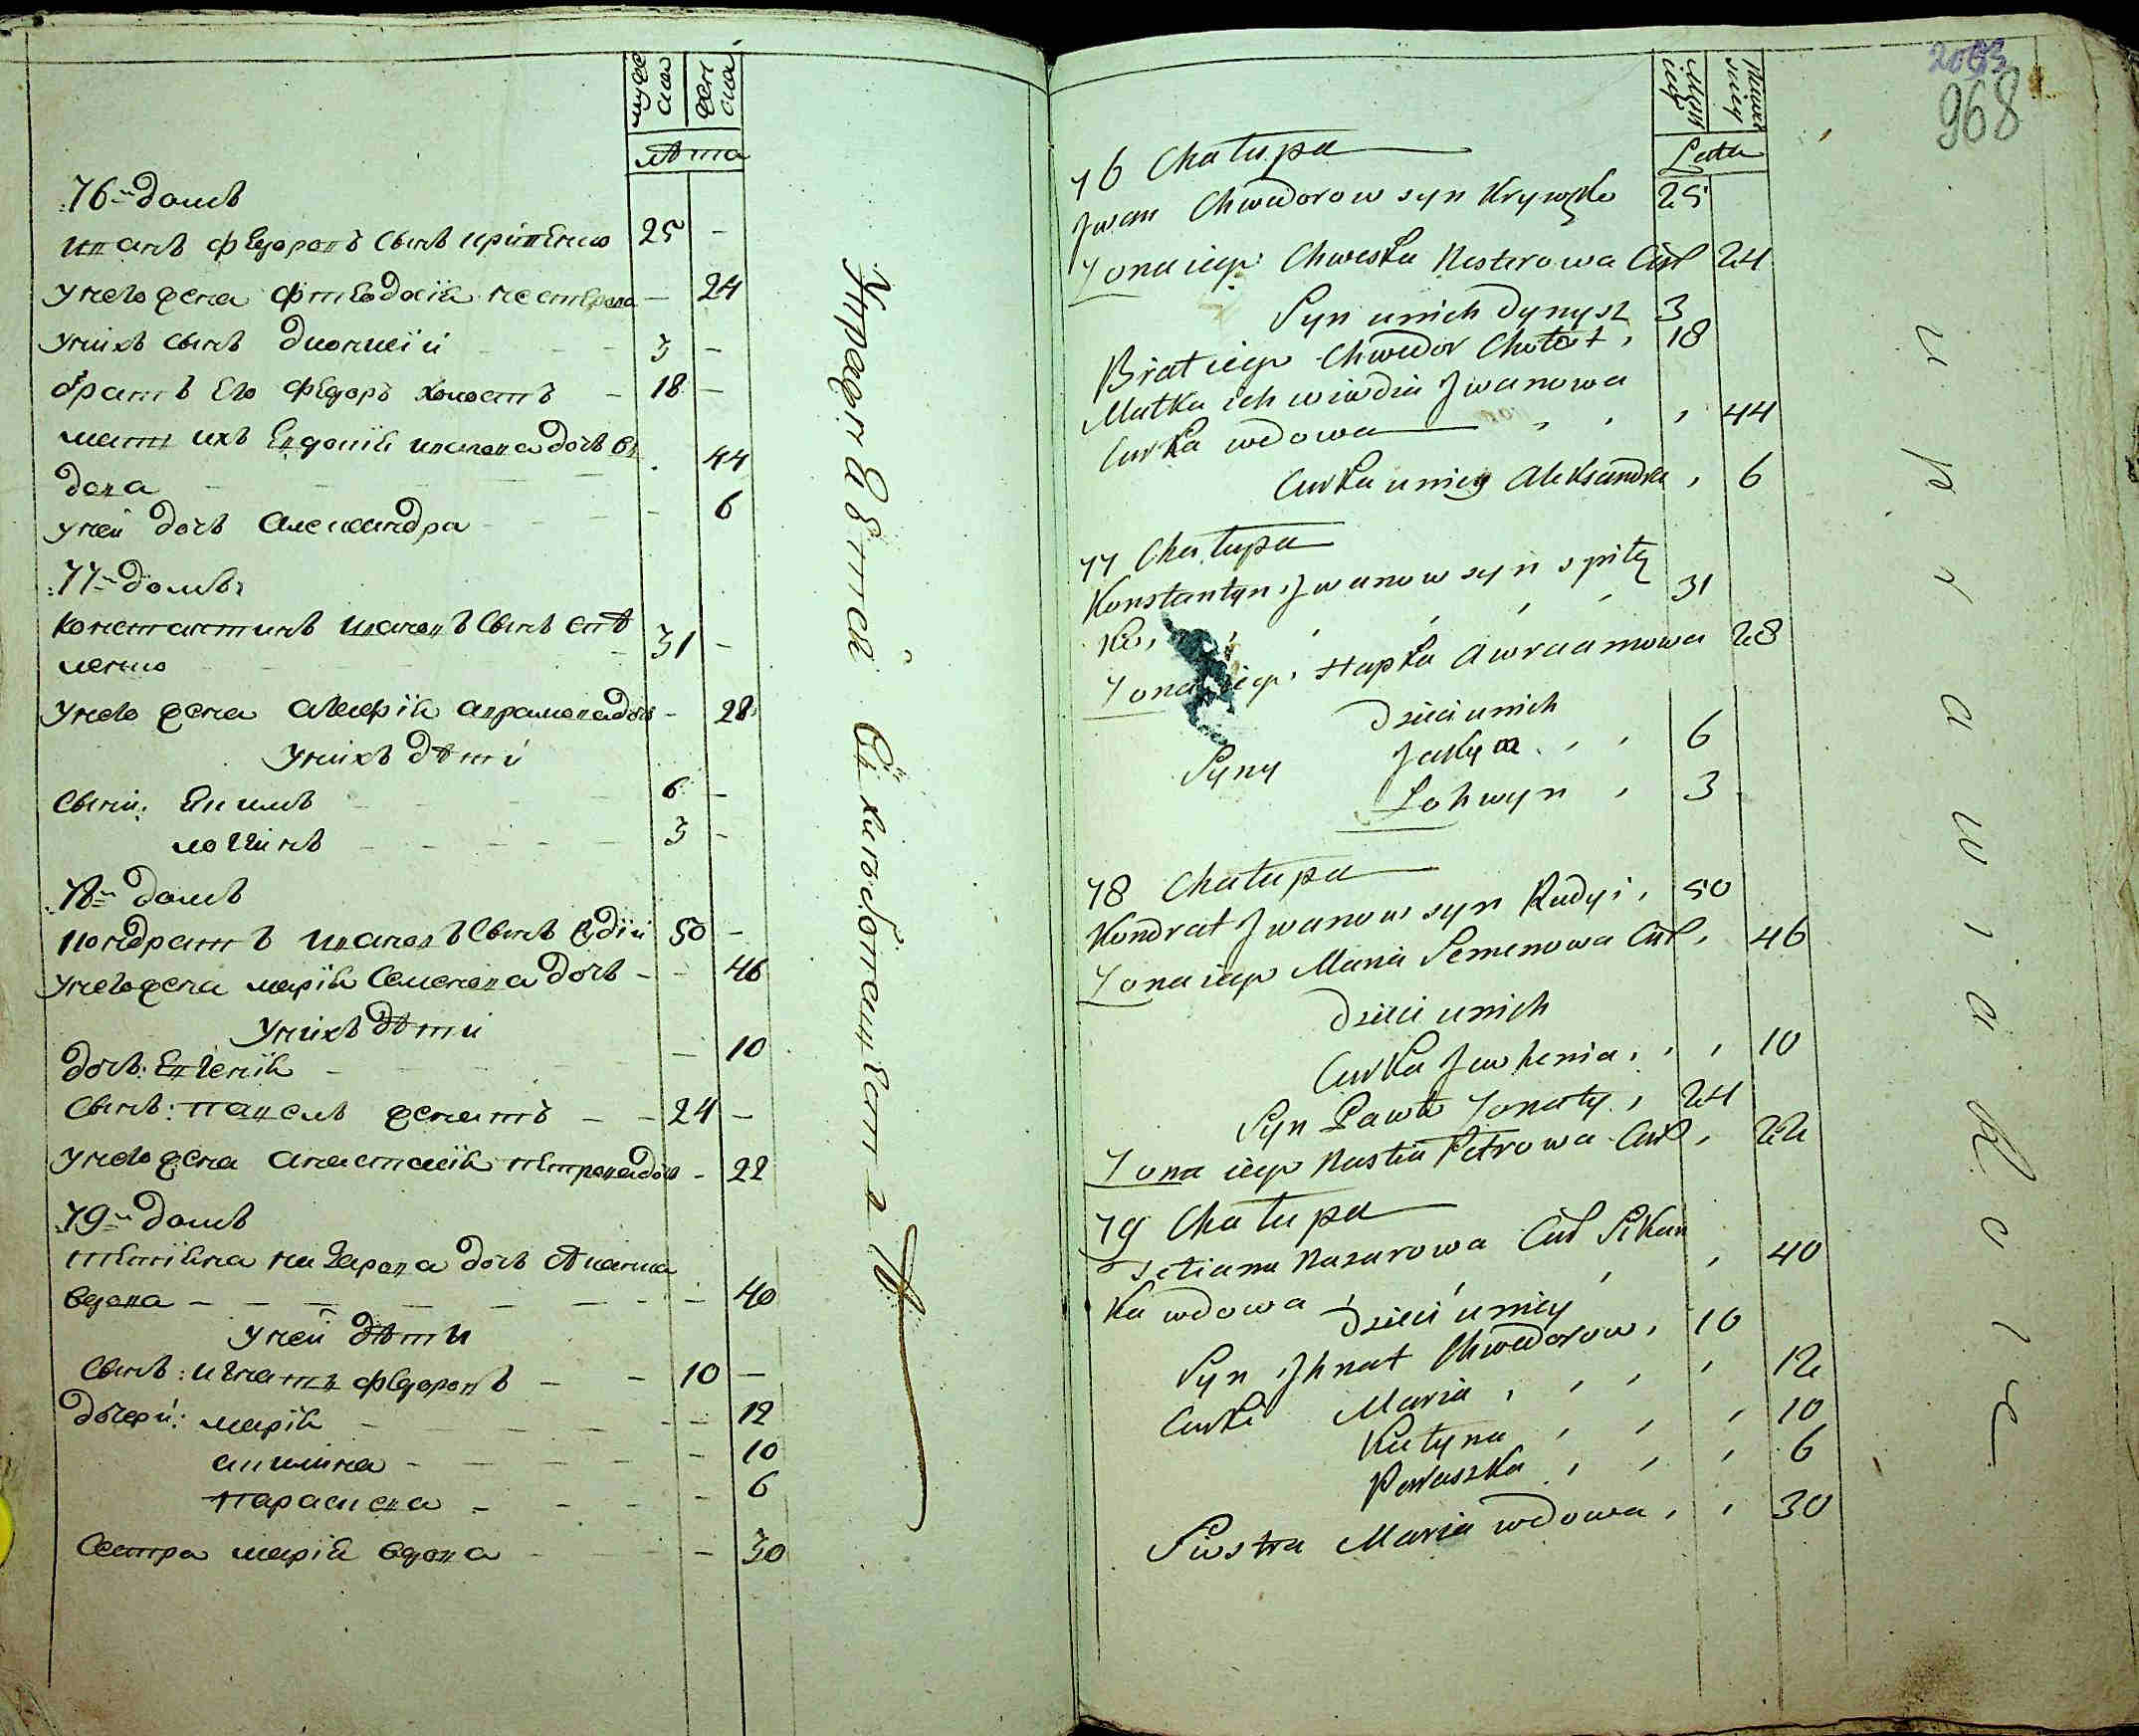 мужеска
женска
лѣта
76й домъ
иванъ федоровъ сынъ кривенко 25 -
у него жена фтеодосия нестерова - 24
у нихъ сынъ дионисий - - - 3 -
братъ его федоръ холостъ - 18 -
мать ихъ евдокия иванова дочь в
дова - - - 44
у ней дочь александра - - - 6
77й домъ
константинъ ивановъ сынъ спѣ
ленко - - - 31 -
у него жена агафия аврамова дочь - 28
у нихъ дѣти
сыны: еким - - - 6 -
логинъ - - - 3 -
78й домъ
кондратъ ивановъ сынъ рудий 50 -
у него жена мария семенова дочь - - 46
у нихъ дѣти
дочь: евгения - - - 10
сынъ: павелъ женатъ - - 24 -
у него жена анастасия петрова дочь - 22
79й домъ
тетиана назарова дочь
вдова - - - 40
у ней дѣти
сынъ: игнатъ федоровъ - - 10 -
дочери: мария - - - 12
акилина - - - 10
параскева - - - 6
сестра мария вдова - - - 30
2063
968
męskiey
żenskiey
Lata
76 Chałupa
Jwan Chwedorow syn Krywko 25
Żona iego Chweska Nesterowa Curk 24
Syn u nich Dynysz 3
Brat iego Chwedor Chołost, 18
Matka ich wiwdia Jwanowa
Curka wdowa , , , 44
Curka u niey Aleksandra , 6
77 Chałupa
Konstantyn Jwanow syn spiłe
ko, , , , , 31
Żona iego Hapka Awraamowa 28
Dzieci u nich
Syny Jakym , , 6
Łohwyn , 3
78 Chałupa
Kondrat Jwanow syn Rudyi, 50
Żona iego Maria Semenowa Curk, 46
Dzieci u nich
Curka Jewhenia, , , 10
Syn Pawło Żonaty, 24
Żona iego Nastia Petrowa Curk, 22
79 Chałupa
Tetiana Nazarowa Curk Sikan
ka wdowa , , , , 40
Dzieci u niey
Syn Jhnat Chwedorow, 10
Curki Maria , , , , 12
Kułyna , , , 10
Paraszka , , , 6
Siostra Maria wdowa, , 30